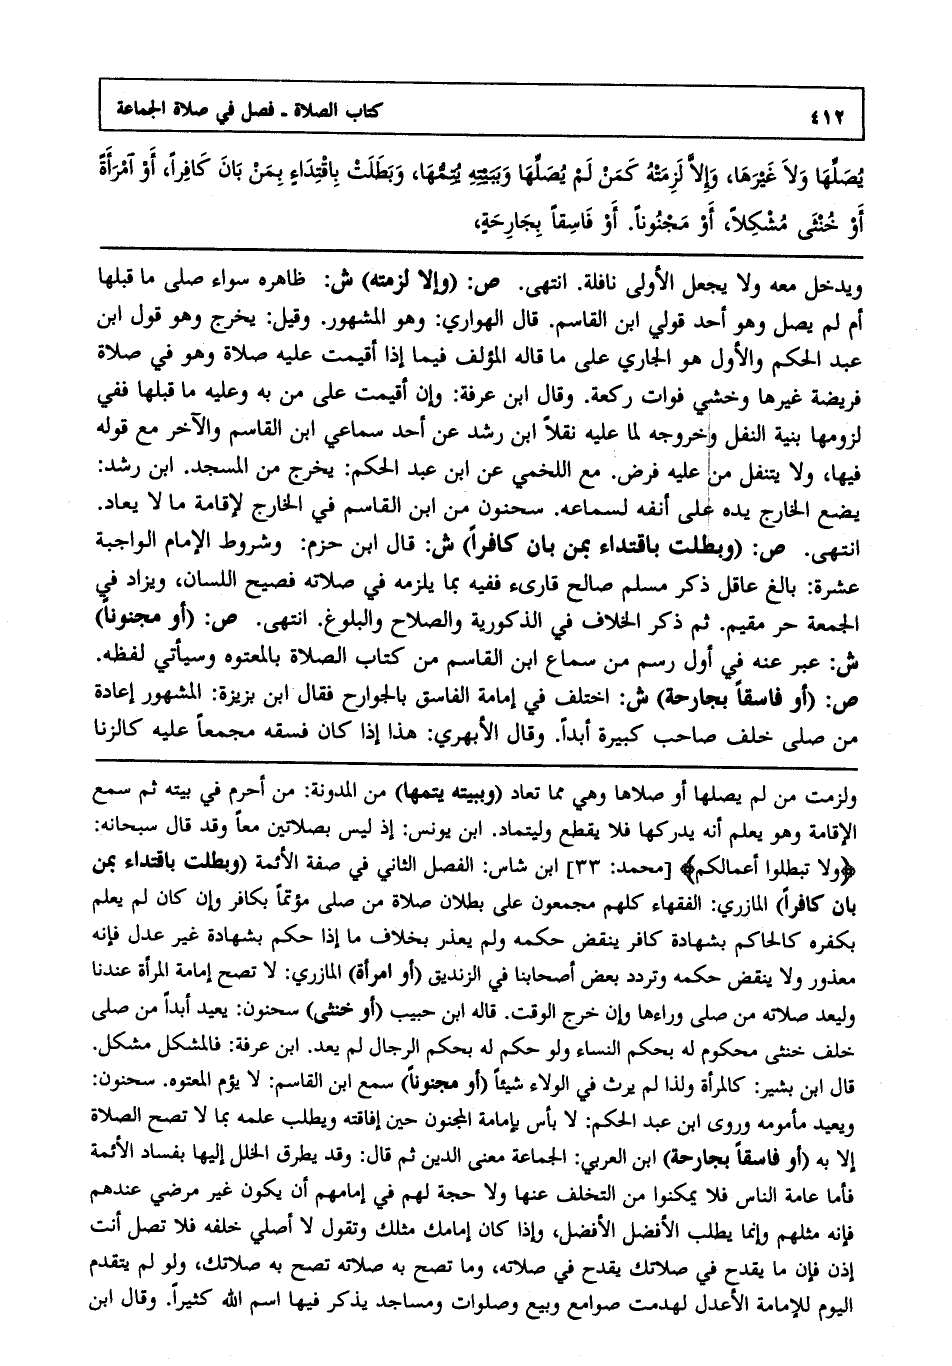 ٤١٢ كتاب الصلاة ـ فصل في صلاة الجماعة
يُصَلِّهَا وَلاَ غَيْرَهَا، وَإِلاَّ لَزِمَتْهُ كَمَنْ لَمْ يُصَلِّهَا وَبِبَيْتِهِ يُتِمُّهَا، وَبَطَلَتْ بِاقْتِدَاءٍ بِمَنْ بَانَ كَافِراً، أَوْ آمْرَأَةً
أَوْ خُنْثَى مُشْكِلاً، أَوْ مَجْنُوناً. أَوْ فَاسِقاً بِجَارِحَةٍ،
ويدخل معه ولا يجعل الأولى نافلة. انتهى. ص: (وإلا لزمته) ش: ظاهره سواء صلى ما قبلها
أم لم يصل وهو أحد قولي ابن القاسم. قال الهواري: وهو المشهور. وقيل: يخرج وهو قول ابن
عبد الحكم والأول هو الجاري على ما قاله المؤلف فيما إذا أقيمت عليه صلاة وهو في صلاة
فريضة غيرها وخشي فوات ركعة. وقال ابن عرفة: وإن أقيمت على من به وعليه ما قبلها ففي
لزومها بنية النفل وخروجه لما عليه نقلاً ابن رشد عن أحد سماعي ابن القاسم والآخر مع قوله
فيها، ولا يتنفل من عليه فرض. مع اللخمي عن ابن عبد الحكم: يخرج من المسجد. ابن رشد:
يضع الخارج يده على أنفه لسماعه. سحنون من ابن القاسم في الخارج لإقامة ما لا يعاد.
انتهى. ص: (وبطلت باقتداء بمن بان كافراً) ش: قال ابن حزم: وشروط الإمام الواجبة
عشرة: بالغ عاقل ذكر مسلم صالح قارىء فقيه بما يلزمه في صلاته فصيح اللسان، ويزاد في
الجمعة حر مقيم. ثم ذكر الخلاف في الذكورية والصلاح والبلوغ. انتهى. ص: (أو مجنوناً)
ش: عبر عنه في أول رسم من سماع ابن القاسم من كتاب الصلاة بالمعتوه وسيأتي لفظه.
ص: (أو فاسقاً بجارحة) ش: اختلف في إمامة الفاسق بالجوارح فقال ابن بزيزة: المشهور إعادة
من صلى خلف صاحب كبيرة أبداً. وقال الأبهري: هذا إذا كان فسقه مجمعاً عليه كالزنا
ولزمت من لم يصلها أو صلاها وهي مما تعاد (وببيته يتمها) من المدونة: من أحرم في بيته ثم سمع
الإقامة وهو يعلم أنه يدركها فلا يقطع وليتماد. ابن يونس: إذ ليس بصلاتين معاً وقد قال سبحانه:
﴿ولا تبطلوا أعمالكم﴾ [محمد: ٣٣] ابن شاس: الفصل الثاني في صفة الأئمة (وبطلت باقتداء بمن
بان كافراً) المازري: الفقهاء كلهم مجمعون على بطلان صلاة من صلى مؤتماً بكافر وإن كان لم يعلم
بكفره كالحاكم بشهادة كافر ينقض حكمه ولم يعذر بخلاف ما إذا حكم بشهادة غير عدل فإنه
معذور ولا ينقض حكمه وتردد بعض أصحابنا في الزنديق (أو امرأة) المازري: لا تصح إمامة المرأة عندنا
وليعد صلاته من صلى وراءها وإن خرج الوقت. قاله ابن حبيب (أو خنثى) سحنون: يعيد أبداً من صلى
خلف خنثى محكوم له بحكم النساء ولو حكم له بحكم الرجال لم يعد. ابن عرفة: فالمشكل مشكل.
قال ابن بشير: كالمرأة ولذا لم يرث في الولاء شيئاً (أو مجنوناً) سمع ابن القاسم: لا يؤم المعتوه. سحنون:
ويعيد مأمومه وروى ابن عبد الحكم: لا بأس بإمامة المجنون حين إفاقته ويطلب علمه بما لا تصح الصلاة
إلا به (أو فاسقاً بجارحة) ابن العربي: الجماعة معنى الدين ثم قال: وقد يطرق الخلل إليها بفساد الأئمة
فأما عامة الناس فلا يمكنوا من التخلف عنها ولا حجة لهم في إمامهم أن يكون غير مرضي عندهم
فإنه مثلهم وإنما يطلب الأفضل الأفضل، وإذا كان إمامك مثلك وتقول لا أصلي خلفه فلا تصل أنت
إذن فإن ما يقدح في صلاتك يقدح في صلاته، وما تصح به صلاته تصح به صلاتك، ولو لم يتقدم
اليوم للإمامة الأعدل لهدمت صوامع وبيع وصلوات ومساجد يذكر فيها اسم الله كثيراً. وقال ابن